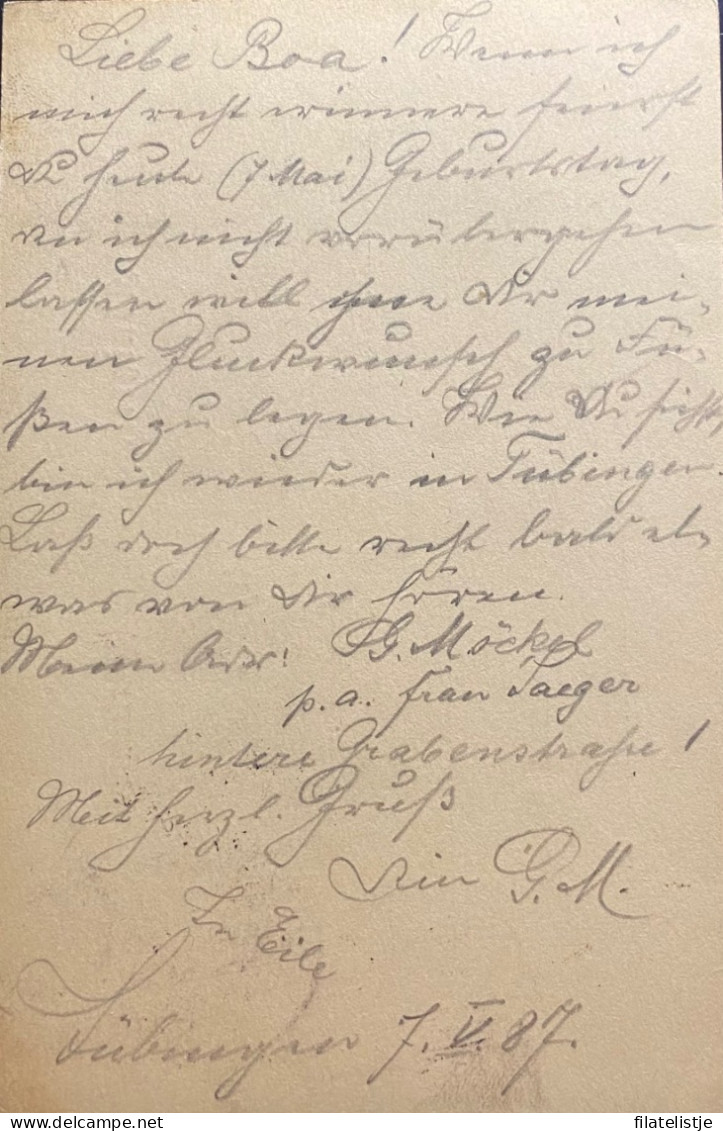 Liebe Boa! Wenn ich
mich recht erinnere feierst
Du heute (7 Mai) Geburtstag,
den ich nicht vorübergehen
lassen will ohne Dir mei-
nen Glückwunsch zu Fü-
ßen zu legen. Wie Du siehst,
bin ich wieder in Tübingen.
Laß doch bitte recht bald et-
was von Dir hören.
Meine Adr: G. Möckel
p.a. Frau Jaeger
hintere Grabenstraße 1
Mit herzl. Gruß
Dein G. M.
In Eile
Tübingen 7. V. 87.
Website: filatelistje